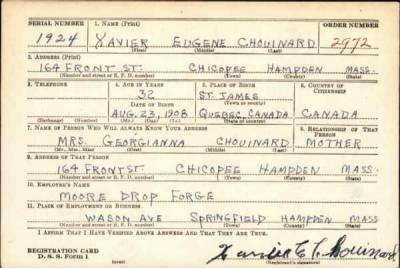 SERIAL NUMBER 1. NAME (Print) ORDER NUMBER
1924 XAVIER EUGENE CHOUINARD 2972
(First) (Middle) (Last)
2. ADDRESS (Print)
164 FRONT ST. CHICOPEE HAMPDEN MASS.
(Number and street or R. F. D. number) (Town) (County) (State)
3. TELEPHONE 4. AGE IN YEARS 5. PLACE OF BIRTH 6. COUNTRY OF CITIZENSHIP
32 ST. JAMES
DATE OF BIRTH (Town or county)
AUG. 23, 1908 QUEBEC, CANADA CANADA
(Exchange) (Number) (Mo.) (Day) (Yr.) (State or country)
7. NAME OF PERSON WHO WILL ALWAYS KNOW YOUR ADDRESS 8. RELATIONSHIP OF THAT PERSON
MRS. GEORGIANNA CHOUINARD MOTHER
(Mr., Mrs., Miss) (First) (Middle) (Last)
9. ADDRESS OF THAT PERSON
164 FRONT ST. CHICOPEE HAMPDEN MASS.
(Number and street or R. F. D. number) (Town) (County) (State)
10. EMPLOYER'S NAME
MOORE DROP FORGE
11. PLACE OF EMPLOYMENT OR BUSINESS
WASON AVE SPRINGFIELD HAMPDEN MASS
(Number and street or R. F. D. number) (Town) (County) (State)
I AFFIRM THAT I HAVE VERIFIED ABOVE ANSWERS AND THAT THEY ARE TRUE.
REGISTRATION CARD
D. S. S. Form 1 (over) (Registrant's signature)